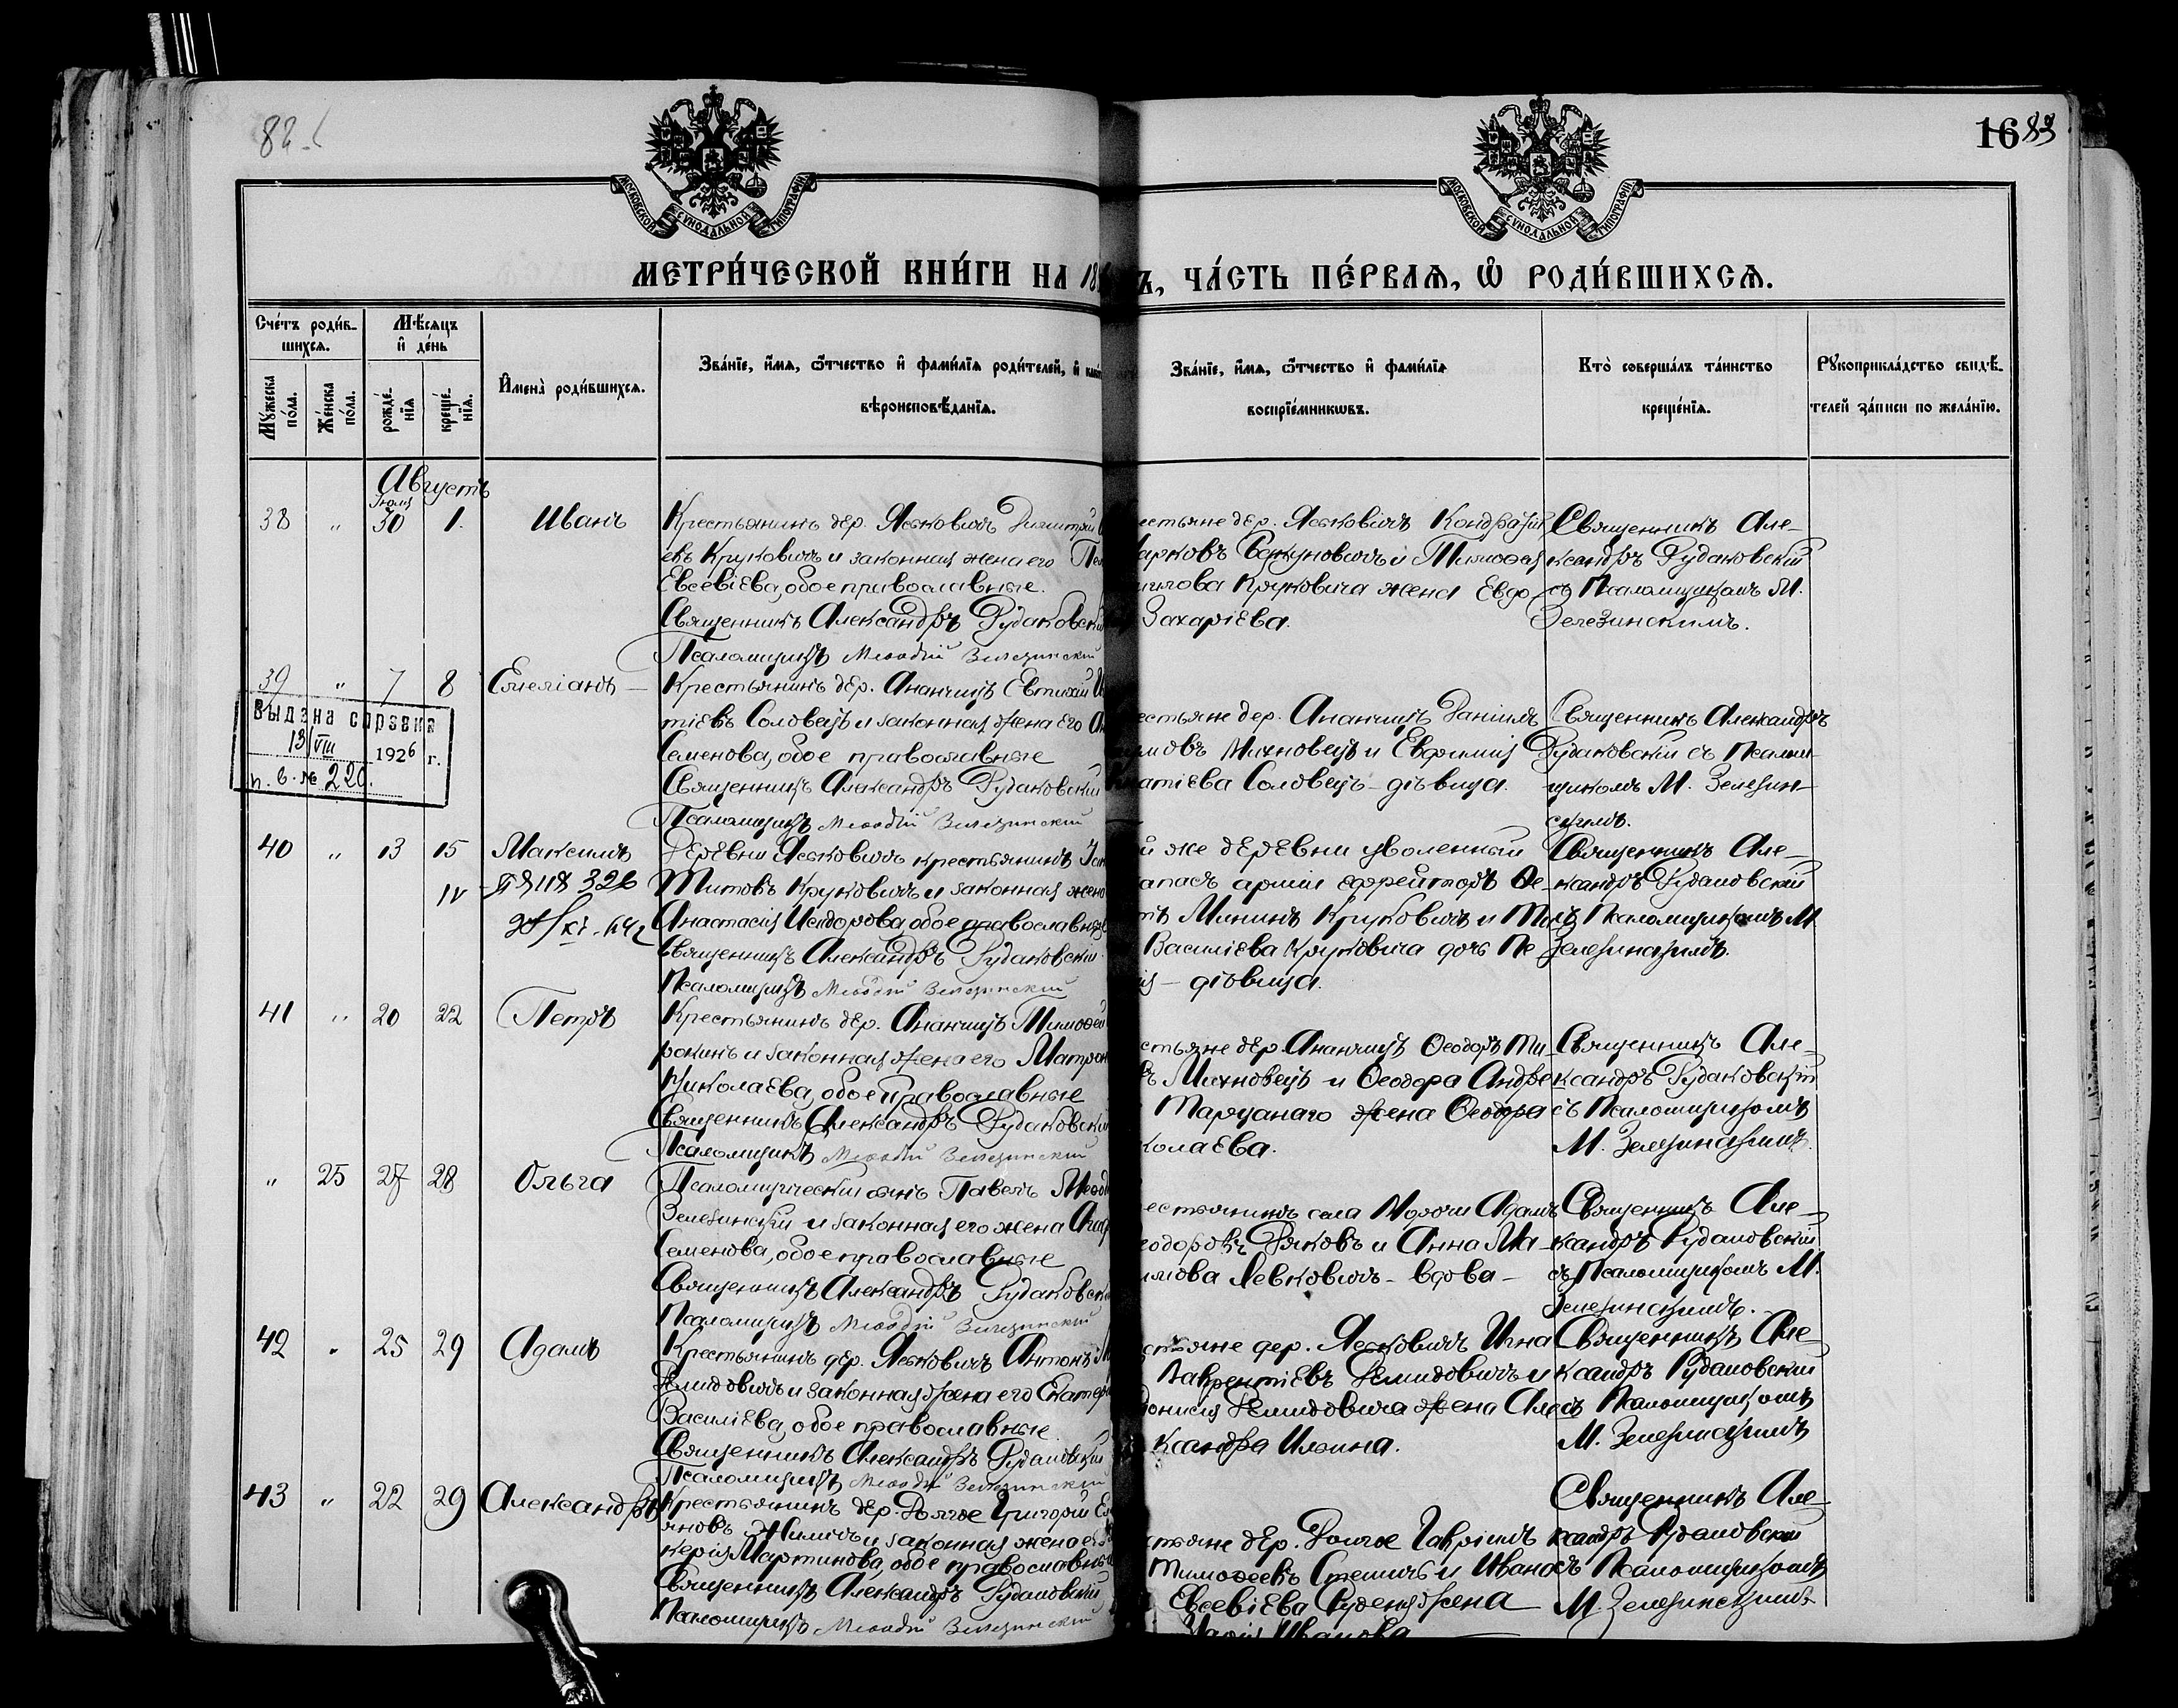 82
16 83
МОСКОВСКОЙ СѴНОДАЛЬНОЙ ТИПОГРАФІИ
МОСКОВСКОЙ СѴНОДАЛЬНОЙ ТИПОГРАФІИ
МЕТРИ́ЧЕСКОЙ КНИ́ГИ НА 18
Ъ, ЧА́СТЬ ПЕ́РВАѦ, Ѽ РОДИ́ВШИХСѦ.
Сче́тъ роди́в-
шихсѧ.
Мꙋжеска по́ла.
Же́нска по́ла.
Мѣ́сѧцъ
и҆ де́нь
рожде́-
нїѧ
креще́-
нїѧ.
И҆мена̀ роди́вшихсѧ.
Зва́нїе, и҆́мѧ, ѻ҆́тчество и҆ фами́лїѧ роди́телей, и҆
вѣроисповѣ́данїѧ.
Зва́нїе, и҆́мѧ, ѻ҆́тчество и҆ фами́лїѧ
воспрїе́мникѡвъ.
Кто̀ соверша́лъ та́инство
креще́нїѧ.
Рꙋкоприкла́дство свидѣ́-
телей за́писи по жела́нїю.
Августъ
38 " Іюля 30 1. Иванъ
Крестьянинъ дер. Ясковичъ Димитрій
евъ Круковичъ и законная жена его Пел
Евсевіева, обое православные.
Священникъ Александръ Рудаковскій
Псаломщикъ Меѳодій Зелезинскій
естьяне дер. Ясковичъ Кондратій
Марковъ Сакуновичъ и Тимоѳея
Круковича жена Евдо
Захаріева.
Священникъ Але-
ксандръ Рудаковскій
съ Псаломщикомъ М.
Зелезинскимъ.
39 " 7 8 Емеліанъ
Крестьянинъ дер. Ананчицъ Евтихій
тіевъ Соловецъ и законная жена его
Семенова, обое православные
Священникъ Александръ Рудаковскій
Псаломщикъ Меѳодій Зелезинскій
естьяне дер. Ананчицъ Даніилъ
Михновецъ и Евфимія
атіева Соловецъ - дѣвица.
Священникъ Александръ
Рудаковскій съ Псалом-
щикомъ М. Зелезин-
скимъ.
Выдана справка
13/VIII 1926 г.
п. в. № 220.
40 " 13 15 Максимъ
Деревни Ясковичъ крестьянинъ
Титовъ Круковичъ и законная жена
Анастасія Исидорова, обое православные
Священникъ Александръ Рудаковскій
Псаломщикъ Меѳодій Зелезинскій
й же деревни уволенный
апасъ арміи ефрейторъ Ѳе-
Мининъ Круковичъ и
Василіева Круковича дочь Пе
- дѣвица.
Священникъ Але-
ксандръ Рудаковскій
съ Псаломщикомъ М.
Зелезинскимъ.
41 " 20 22 Петръ
Крестьянинъ дер. Ананчицъ Тимоѳей
и законная жена его Матрон
Николаева, обое православные
Священникъ Александръ Рудаковскій
Псаломщикъ Меѳодій Зелезинскій
естьяне дер. Ананчицъ Ѳеодоръ Ти-
Михновецъ и Ѳеодора Андре
жена Ѳеодора
колаева.
Священникъ Але-
ксандръ Рудаковскій
съ Псаломщикомъ
М. Зелезинскимъ.
" 25 27 28 Ольга
Псаломщическій сынъ Павелъ Меѳоді
Зелезинскій и законная его жена
Семенова, обое православные
Священникъ Александръ Рудаковскій
Псаломщикъ Меѳодій Зелезинскій
естьянинъ села Морочи Адамъ
еодоровъ Дяковъ и Анна Ма-
имова Левковичъ - вдова -
Священникъ Але-
ксандръ Рудаковскій
съ Псаломщикомъ М.
Зелезинскимъ.
42 " 25 29 Адамъ
Крестьянинъ дер. Ясковичъ Антонъ
Демидовичъ и законная жена его Екатер
Василіева, обое православные
Священникъ Александръ Рудаковскій
Псаломщикъ Меѳодій Зелезинскій
стьяне дер. Ясковичъ Игна
Лаврентіевъ Демидовичъ и
Діонисія Демидовича жена Але-
ксандра Ильина.
Священникъ Але-
ксандръ Рудаковскій
съ Псаломщикомъ
М. Зелезинскимъ
43 " 22 29 Александръ
Крестьянинъ дер. Долгое Григорій Ем
яновъ и законная жена его
керія Мартинова, обое православные
Священникъ Александръ Рудаковскій
Псаломщикъ Меѳодій Зелезинскій
стьяне дер. Долгое Гавріилъ
Тимоѳеевъ и Ивана
Евсевіева жена
Марія Иванова
Священникъ Але-
ксандръ Рудаковскій
съ Псаломщикомъ
М. Зелезинскимъ